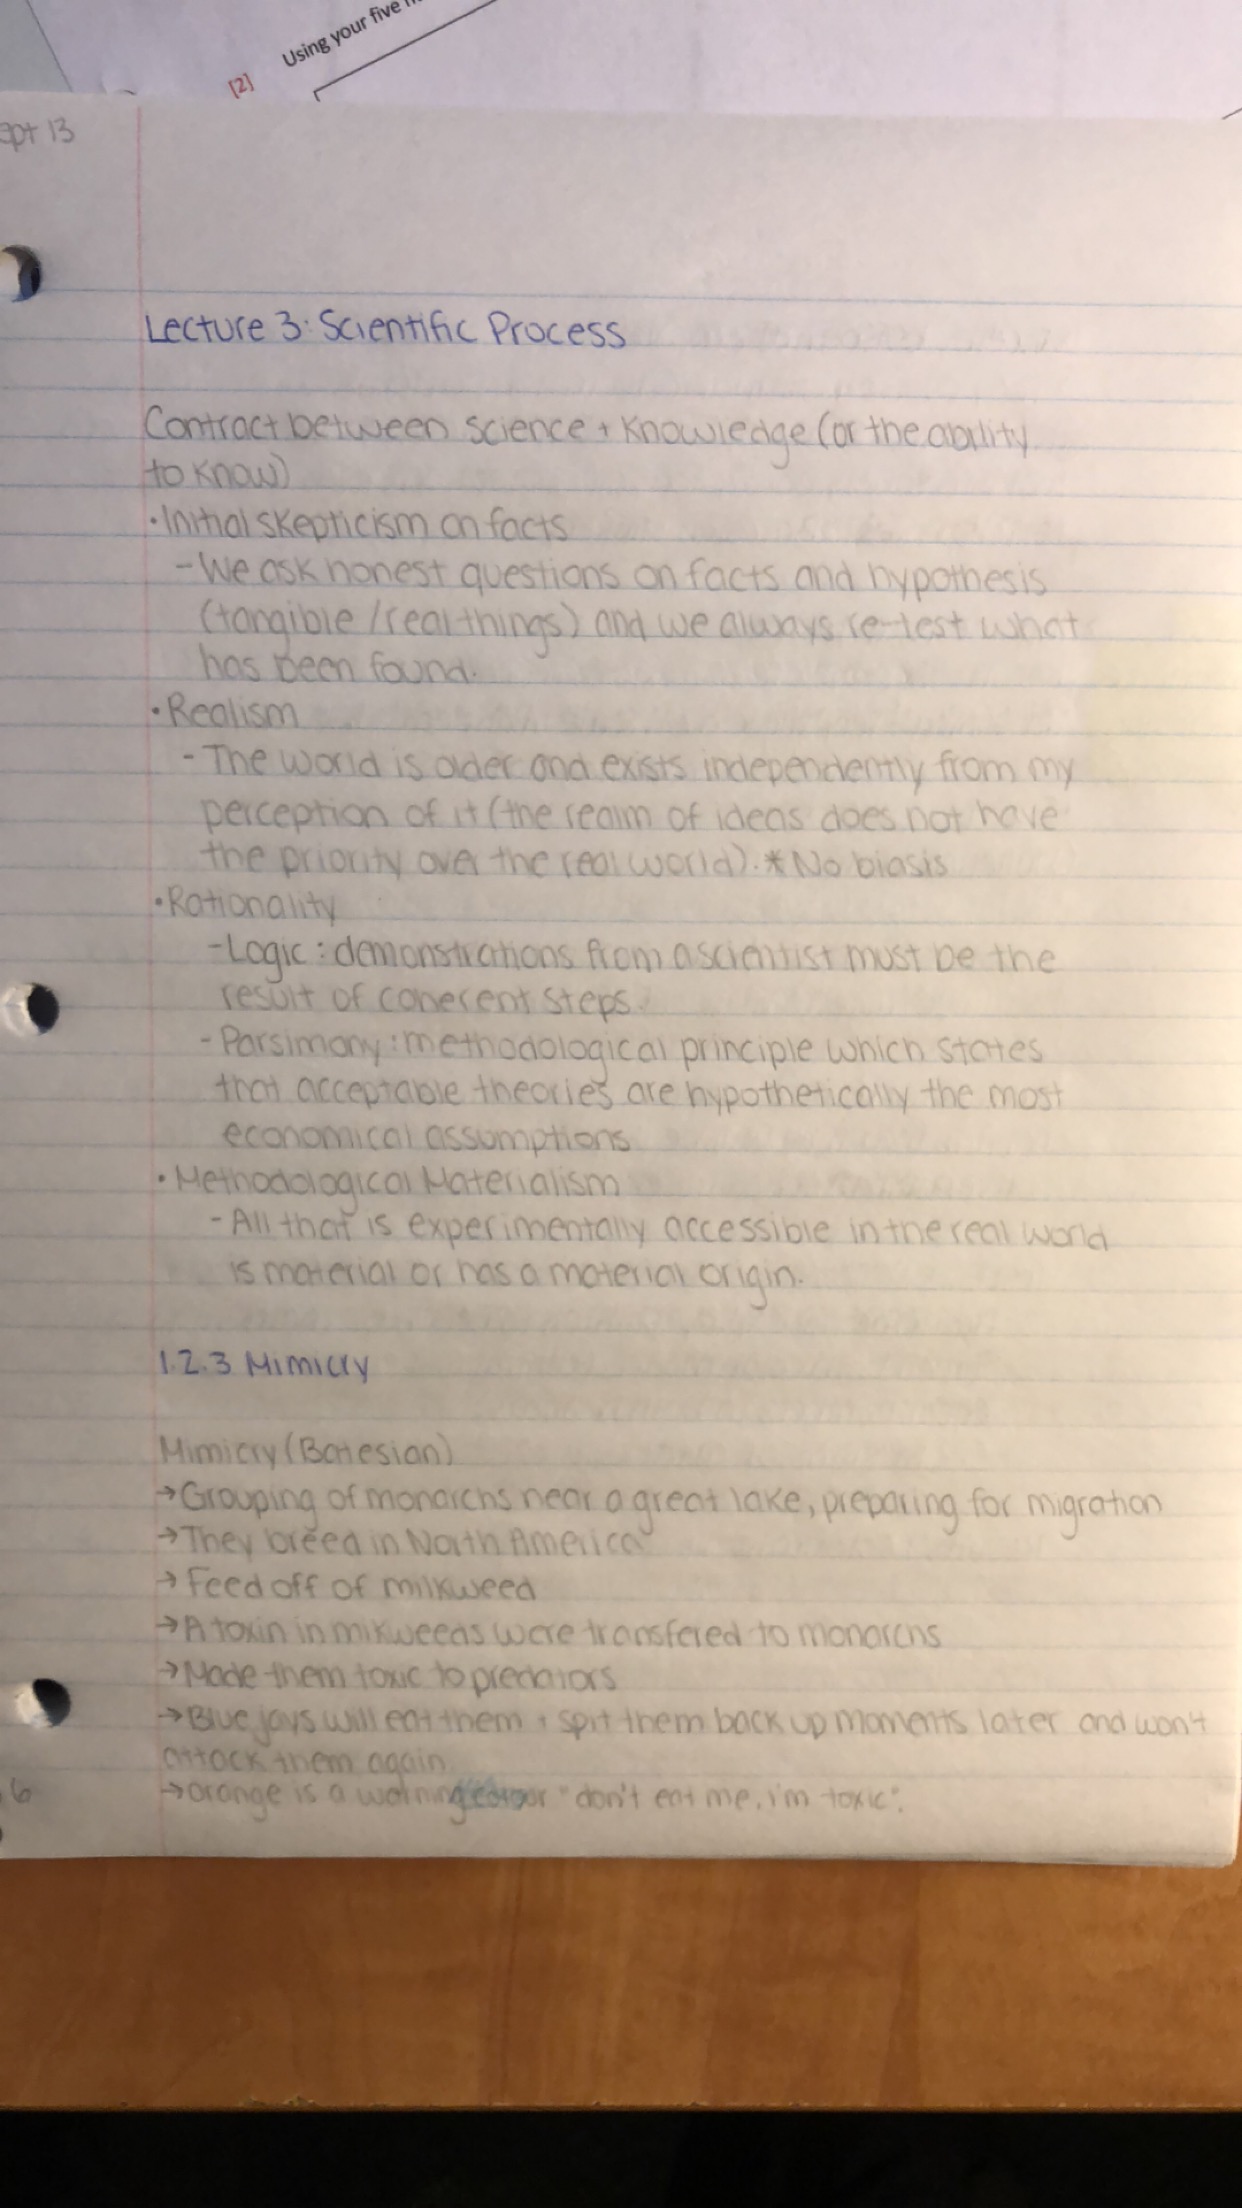 Using your five
[2]
ept 13
Lecture 3: Scientific Process
Contract between science + Knowledge (or the ability
to know)
• Initial skepticism on facts
- We ask honest questions on facts and hypothesis
(tangible / real things) and we always re-test what
has been found.
• Realism
- The world is older and exists independently from my
perception of it (the realm of ideas does not have
the priority over the real world). * No biasis
• Rationality
- Logic : demonstrations from a scientist must be the
result of coherent steps.
- Parsimony : methodological principle which states
that acceptable theories are hypothetically the most
economical assumptions
• Methodological Materialism
- All that is experimentally accessible in the real world
is material or has a material origin.
1.2.3 Mimicry
Mimicry (Batesian)
→ Grouping of monarchs near a great lake, preparing for migration
→ They breed in North America
→ Feed off of milkweed
→ A toxin in mikweeds were transfered to monarchs
→ Made them toxic to predators
→ Blue jays will eat them + spit them back up moments later and won't
attack them again
6
→ orange is a warning colour "don't eat me, i'm toxic".